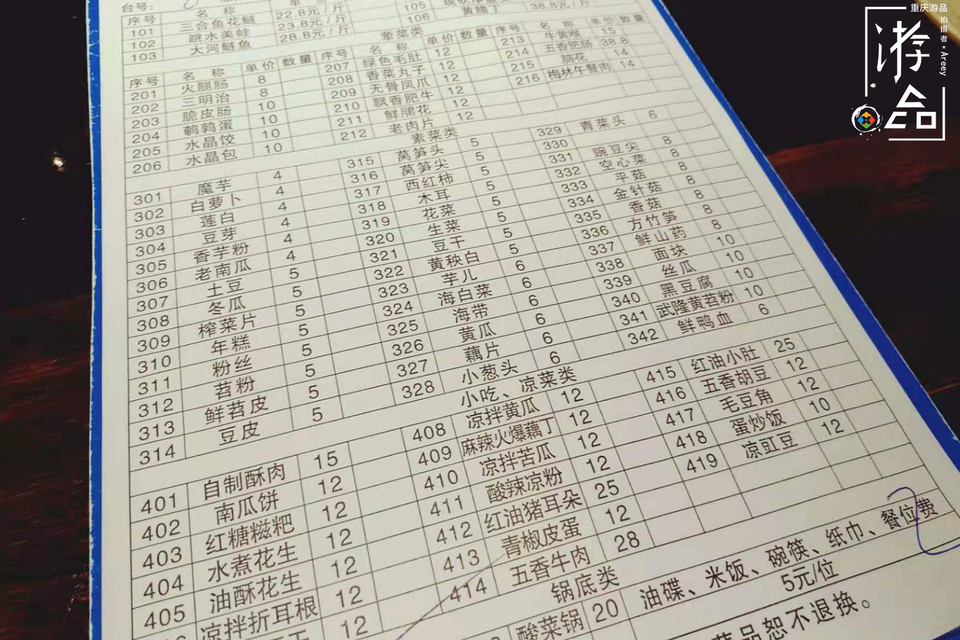 台号:
序号 名称 单价
101 三合鱼花鲢 22.8元/斤
102 跳水美蛙 23.8元/斤
103 大河鲢鱼 28.8元/斤
105
106 黄腊丁 38.8元/斤
荤菜类
序号 名称 单价 数量 序号 名称 单价 数量 序号 单价 数量
201 火腿肠 8
202 三明治 8
203 脆皮肠 10
204 鹌鹑蛋 10
205 水晶饺 10
206 水晶包 10
207 绿色毛肚 12
208 香菜丸子 12
209 无骨凤爪 12
210 飘香肥牛 12
211 鲜腰花 12
212 老肉片 12
213 牛黄喉 15
214 五香肥肠 38.8
215 脑花
216 梅林午餐肉 14
素菜类
301 魔芋 4
302 白萝卜 4
303 莲白 4
304 豆芽 4
305 香芋粉 4
306 老南瓜
307 土豆 5
308 冬瓜 5
309 榨菜片 5
310 年糕 5
311 粉丝 5
312 苕粉 5
313 鲜苕皮 5
314 豆皮 5
315 莴笋头 5
316 莴笋尖 5
317 西红柿 5
318 木耳 5
319 花菜 5
320 生菜 5
321 豆干 5
322 黄秧白 5
323 芋儿 6
324 海白菜 6
325 海带 6
326 黄瓜 6
327 藕片 6
328 小葱头 6
329 青菜头 6
330 豌豆尖 8
331 空心菜 8
332 平菇 8
333 金针菇 8
334 香菇 8
335 方竹笋 8
336 鲜山药 8
337 面块 10
338 丝瓜 10
339 黑豆腐 10
340 武隆黄苕粉 10
341 鲜鸭血 6
342
小吃、凉菜类
401 自制酥肉 15
402 南瓜饼 12
403 红糖糍粑 12
404 水煮花生 12
405 油酥花生 12
凉拌折耳根 12
12
408 凉拌黄瓜 12
409 麻辣火爆藕丁 12
410 凉拌苦瓜 12
411 酸辣凉粉 12
412 红油猪耳朵 25
413 青椒皮蛋 12
414 五香牛肉 28
415 红油小肚 25
416 五香胡豆 12
417 毛豆角 12
418 蛋炒饭 10
419 凉豇豆 12
锅底类
酸菜锅 20
油碟、米饭、碗筷、纸巾、餐位费
5元/位
菜品恕不退换。
重庆游品
游品
拍摄者·Areey